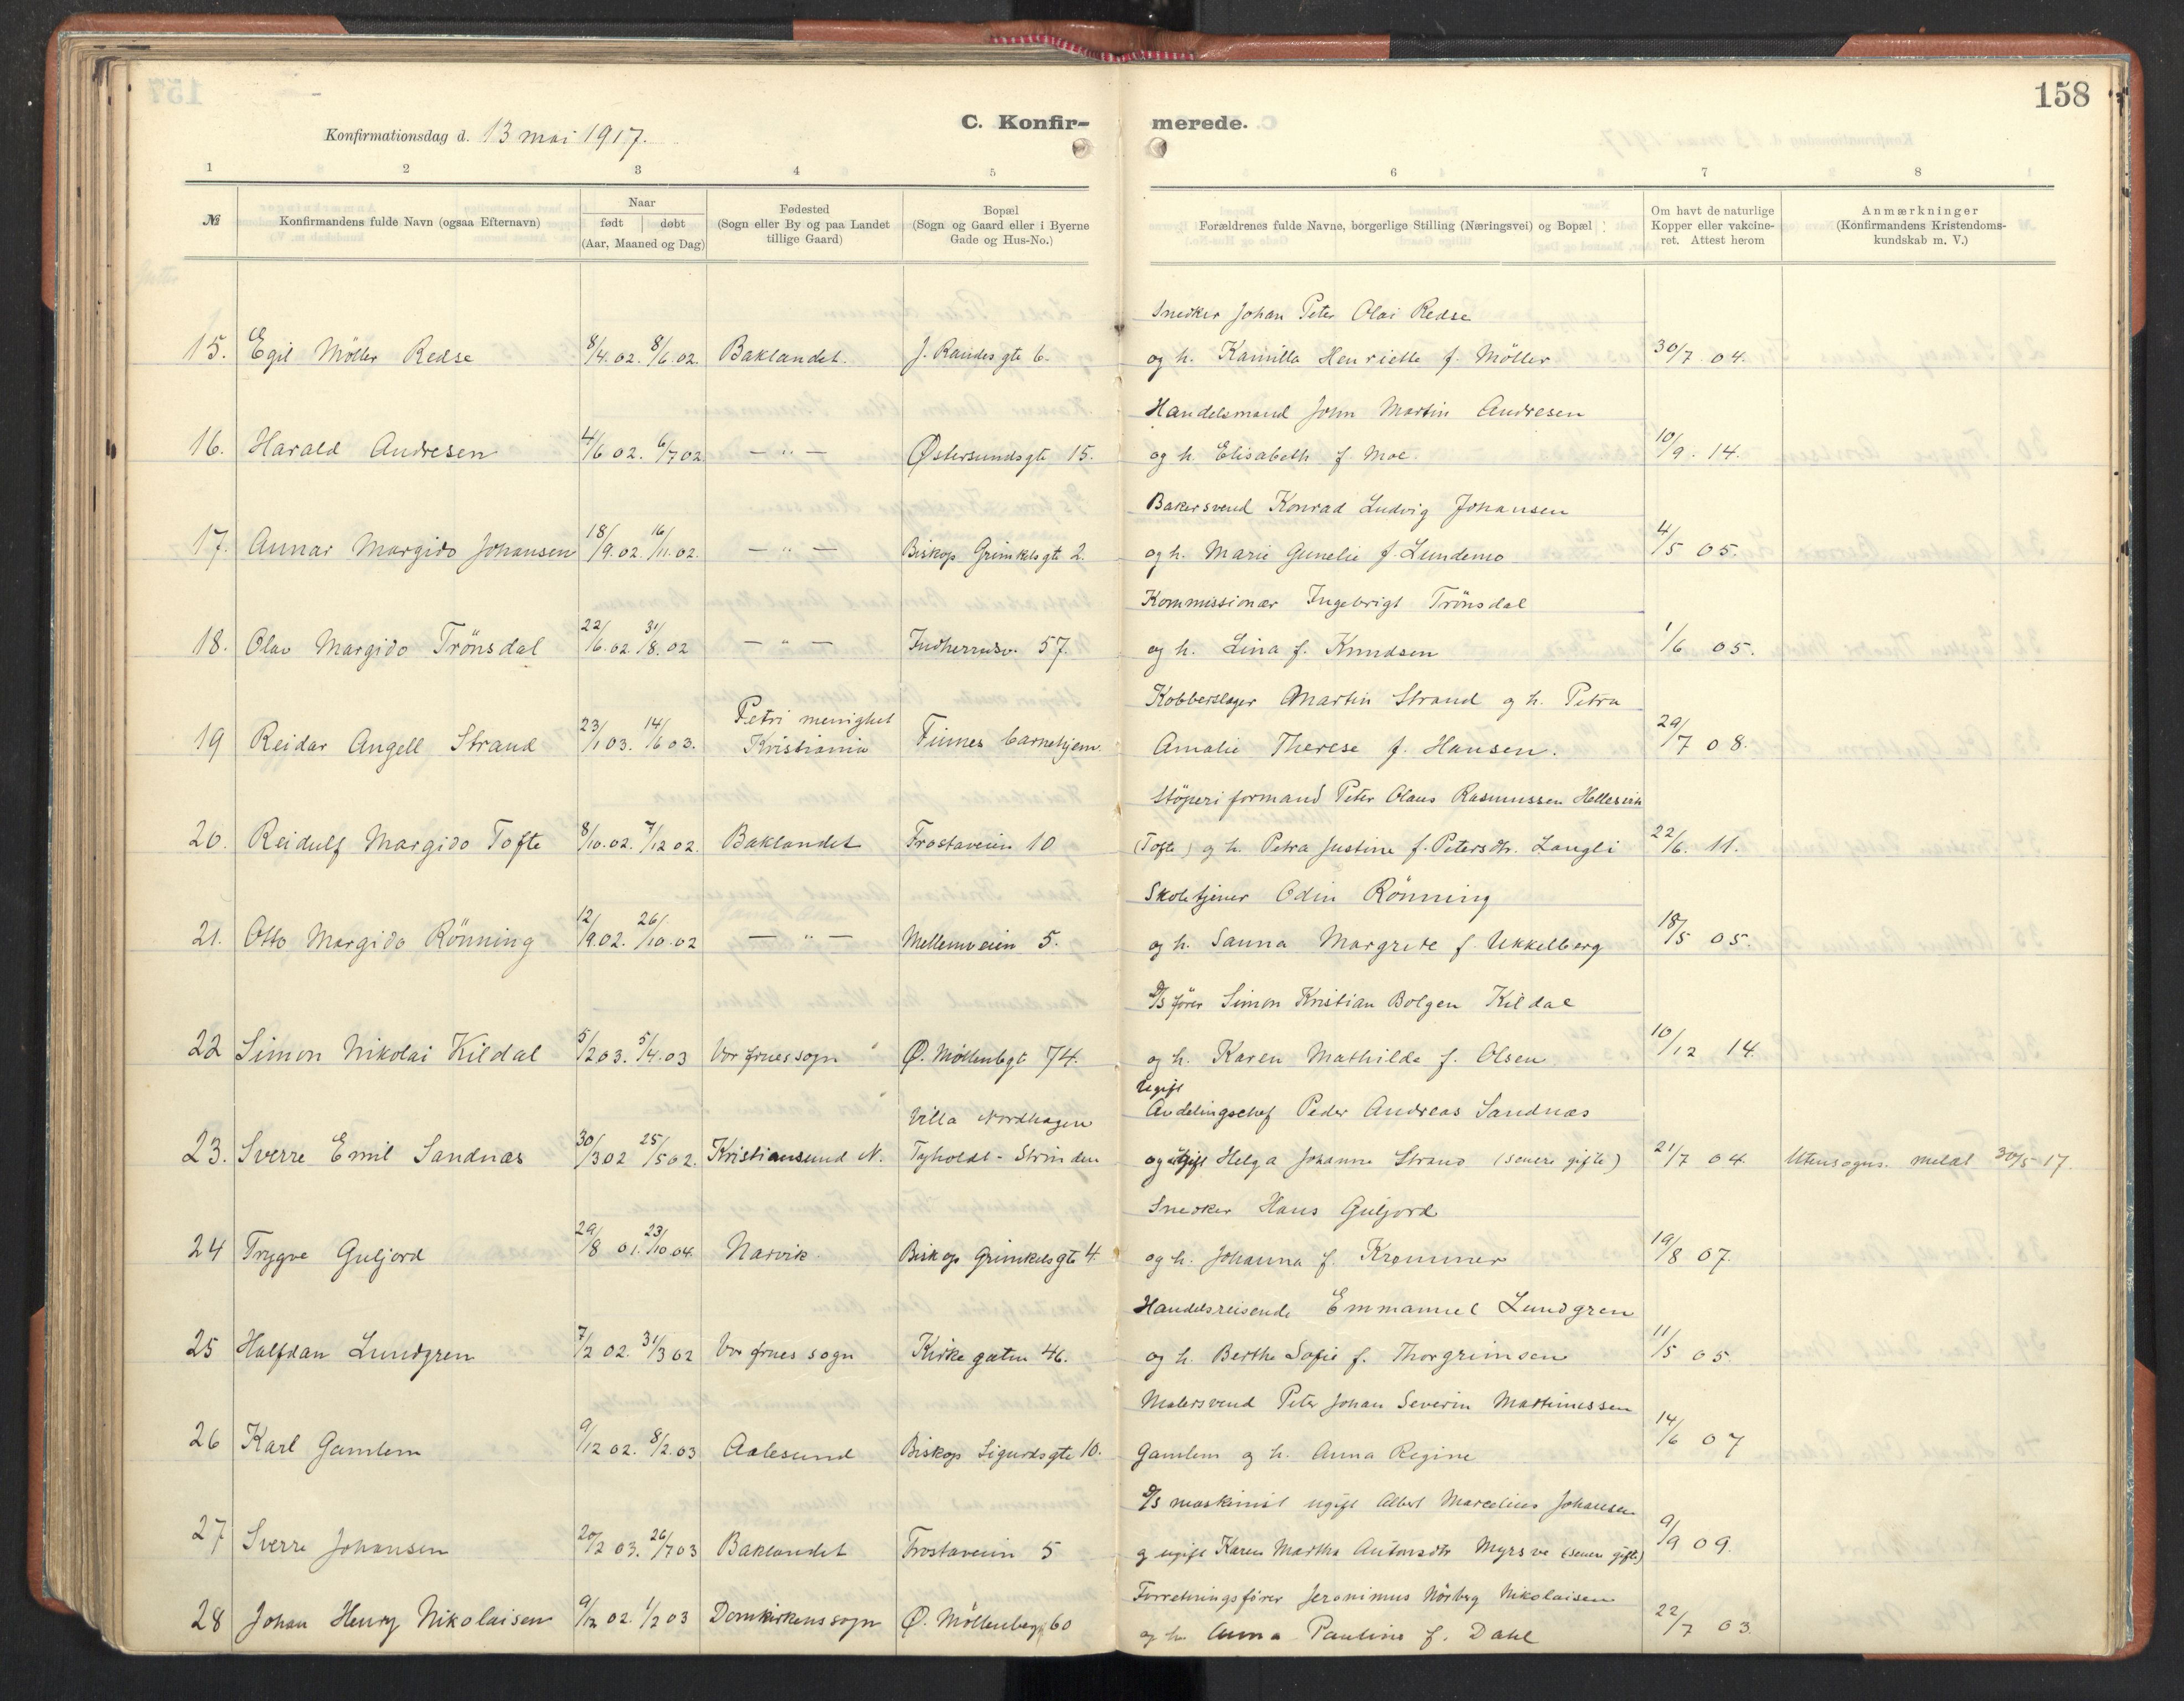 158
C. Konfir- merede.
Konfirmationsdag d. 13 mai 1917.
1 2 3 4 5 6 7 8
№ Konfirmandens fulde Navn (ogsaa Efternavn)
Naar
født døbt
(Aar, Maaned og Dag)
Fødested
(Sogn eller By og paa Landet
tillige Gaard)
Bopæl
(Sogn og Gaard eller i Byerne
Gade og Hus-No.)
Forældrenes fulde Navne, borgerlige Stilling (Næringsvei) og Bopæl
Om havt de naturlige
Kopper eller vakcine-
ret. Attest herom
Anmærkninger
(Konfirmandens Kristendoms-
kundskab m. V.)
Snedker Johan Peter Olai Redse
15. Egil Möller Redse 8/4.02. 8/6.02. Baklandet. J. Randes gte 6. og h. Kamilla Henriette f. Möller 30/7 04.
Handelsmand John Martin Andresen
16. Harald Andresen 4/6 02. 6/7 02. — " — Østersundsgt 15. og h. Elisabeth f. Moe. 10/9. 14.
Bakersvend Konrad Ludvig Johansen
17. Annar Margido Johansen 18/9.02. 16/11.02. — " — Biskop Grimkelsgt 2. og h. Marie Gunelie f. Lundemo 4/5 05.
Kommissionær Ingebrigt Trönsdal
18. Olav Margido Trönsdal 22/6.02. 31/8.02 — " — Indherredsv. 57. og h. Lina f. Knudsen 1/6 05.
Kobberslager Martin Strand og h. Petra
Petri menighet
19 Reidar Angell Strand 23/1 03. 14/6 03. Kristiania Finnes barnehjem. Amalie Therese f. Hansen. 29/7 08.
Stöperiformand Peter Olaus Rasmussen Hellesvik
20. Reidulf Margido Tofte 8/10.02. 7/12 02. Baklandet Frostaveien 10 (Tofte) og h. Petra Justine f. Petersdtr. Langli 22/6. 11.
Skoletjener Odin Rönning
21. Otto Margido Rönning 12/9.02. 26/10.02 — " — Mellemveien 5. og h. Sanna Margrete f Ukkelberg 18/5 05.
D/S fører Simon Kristian Bolgen Kildal
22 Simon Nikolai Kildal 5/2 03. 5/4.03 Vor frues sogn Ø. Möllenbgt 74. og h. Karen Mathilde f. Olsen 10/12 14.
Ugift
Villa Nordhagen Avdelingschef Peder Andreas Sandnæs
23. Sverre Emil Sandnæs 30/3 02 25/5 02. Kristiansund N. Tyholdt - Strinden og ugift Helga Johanne Strand (senere gifte) 21/7 04. Utensogns. meldt 30/5 17.
Snedker Hans Guljord
24 Trygve Guljord 29/8 01. 23/10 04. Narvik. Biskop Grimkelsgt 4. og h. Johanna f. Krommer 19/8 07.
Handelsreisende Emmanuel Lundgren
25 Halfdan Lundgren 7/2 02. 31/3 02 Vor frues sogn Kirkegaten 46. og h. Berthe Sofie f. Thorgrimsen 11/5 05.
Malersvend Peter Johan Severin Martinussen
26 Karl Gamlem 9/12 02. 8/2.03 Aalesund Biskop Sigurdsgte 10. Gamlem og h. Anna Regine 14/6 07
D/S maskinist ugift Albert Marcelius Johansen
27 Sverre Johansen 20/2 03. 26/7 03 Baklandet Frostaveien 5 og ugift Karen Martha Antonsdtr Myrsve (senere gifte) 9/9 09.
Forretningsfører Jeronimus Nörberg Nikolaisen
28 Johan Henry Nikolaisen 9/12 02. 1/2 03 Domkirkens sogn Ø. Möllenberg 60 og h. Anna Pauline f. Dahl 22/7 03.